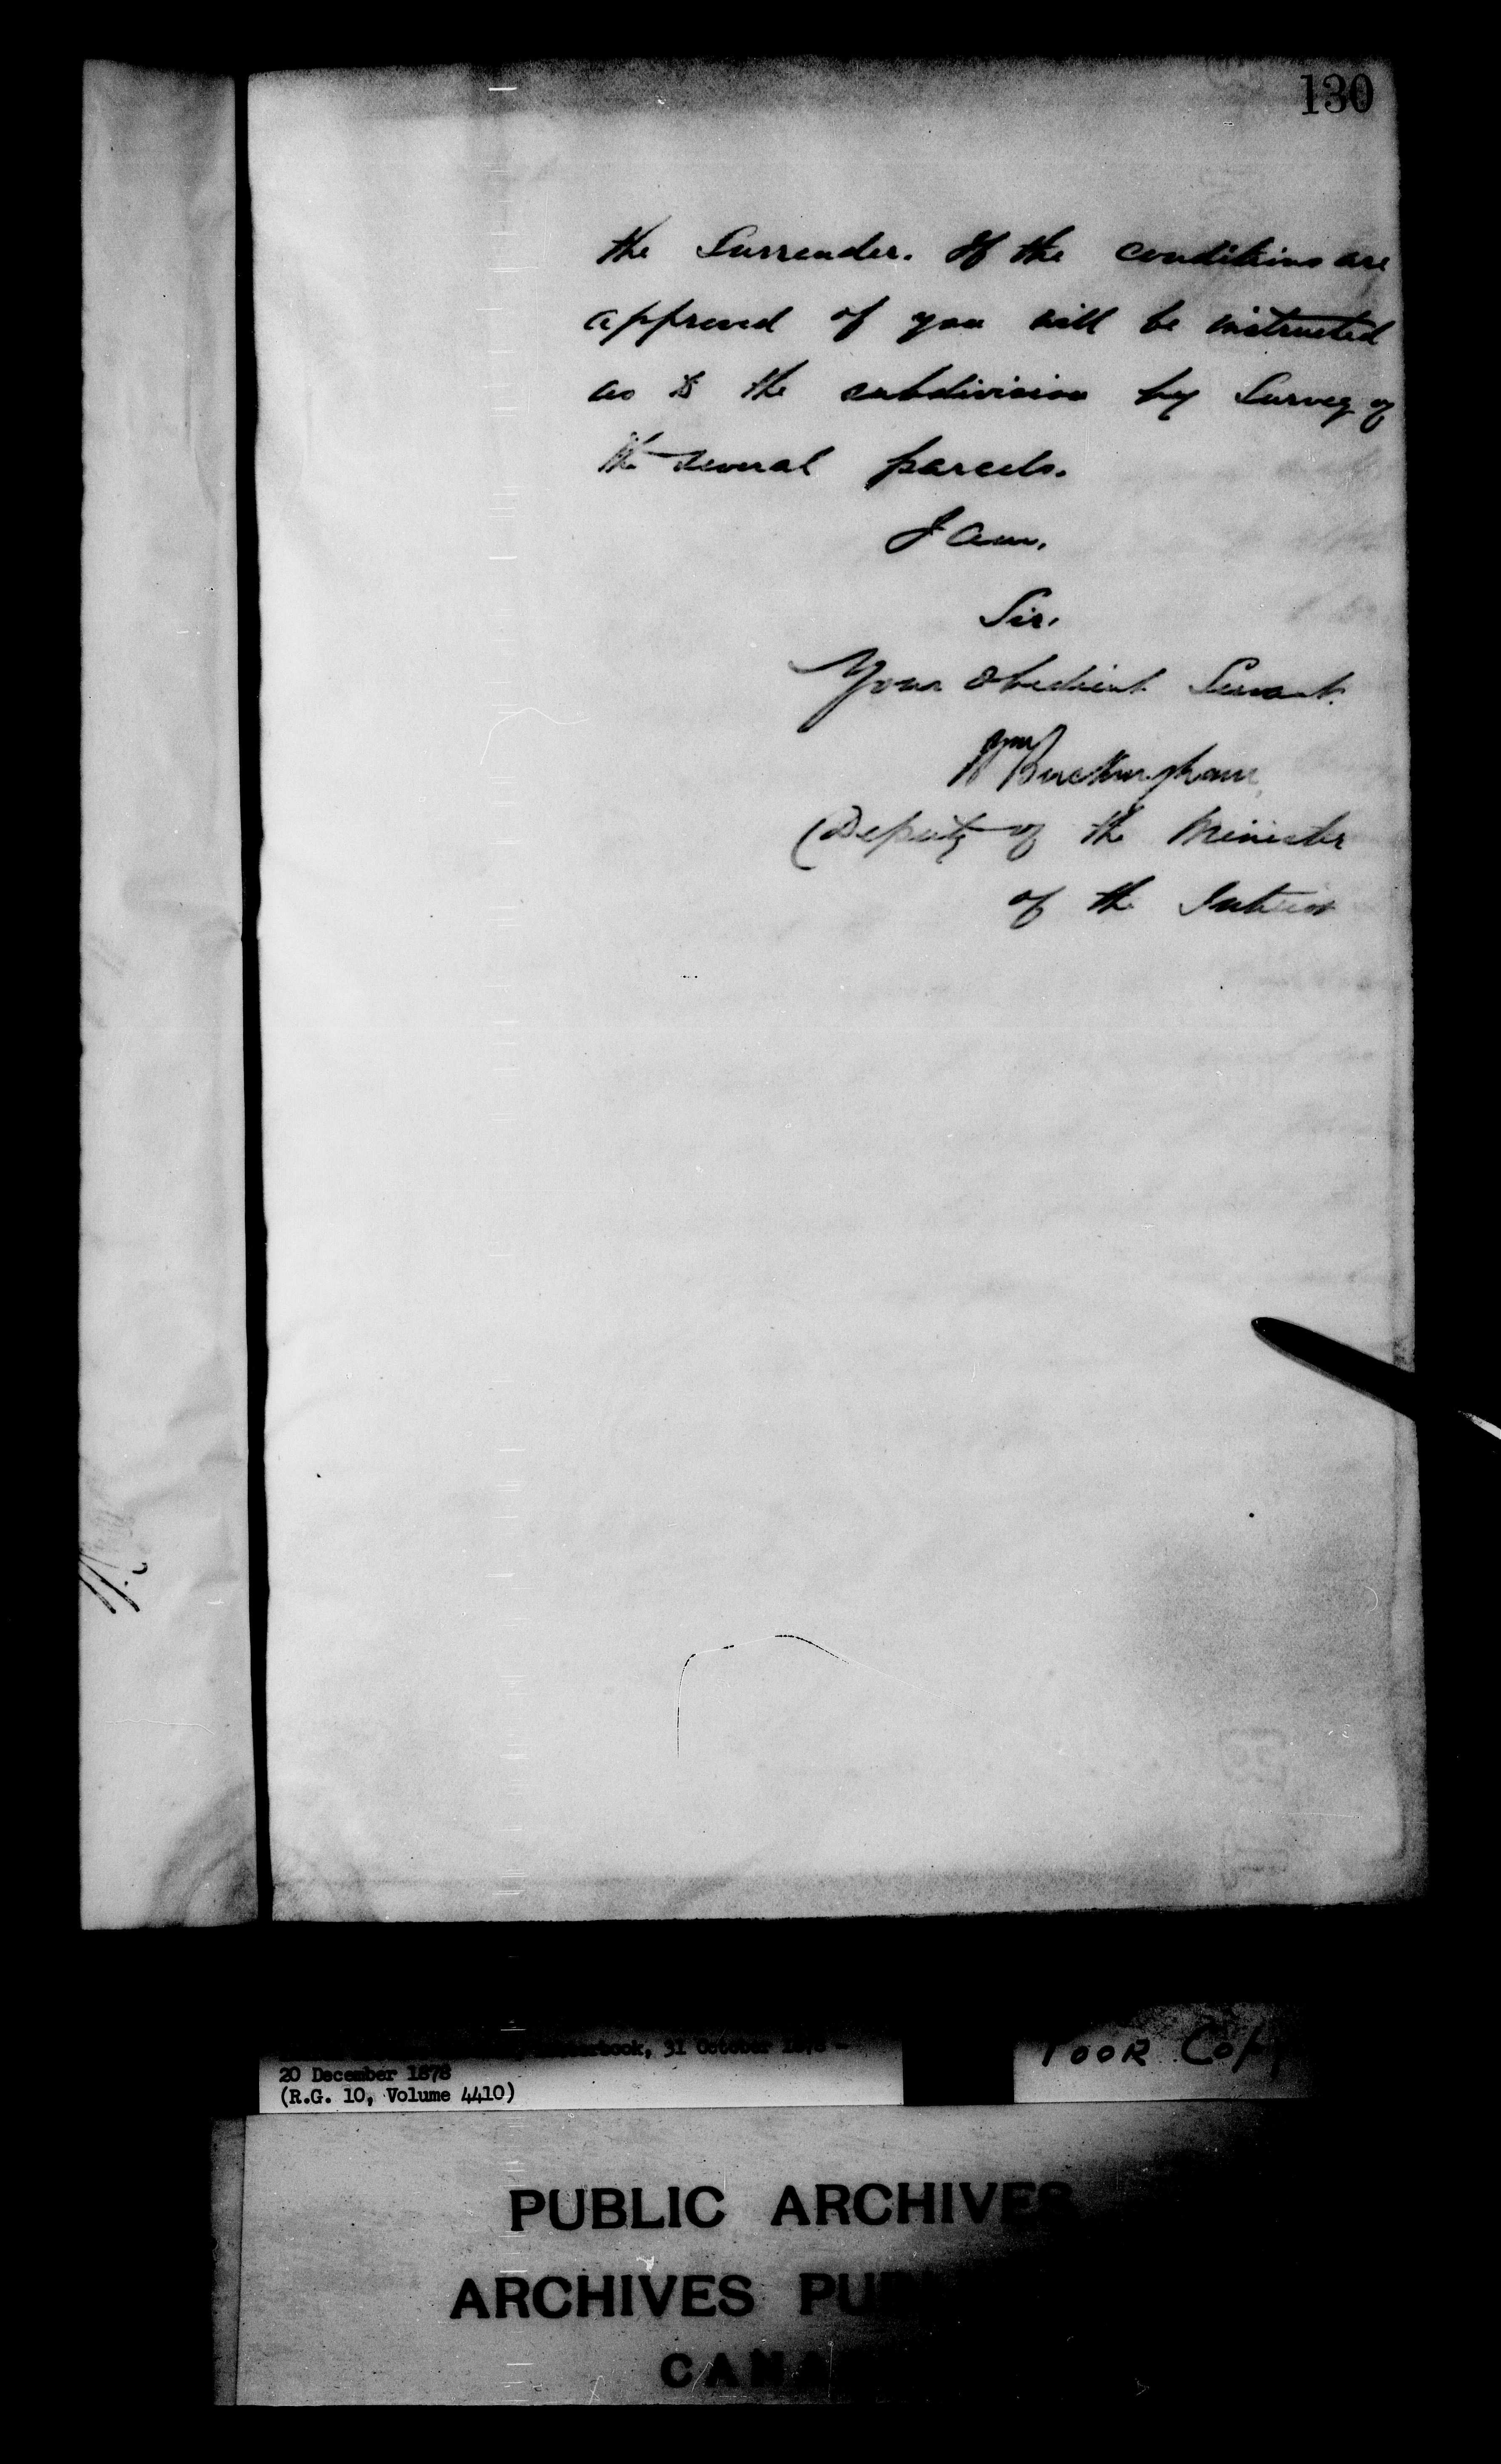 130
the Surrender. If the conditions are
approved of you will be instructed
as to the subdivision by Survey of
the several parcels.
I am,
Sir,
Your obedient Servant.
Wm Buckingham
Deputy of the Minister
of the Interior
31 October
20 December 1878
(R.G. 10, Volume 4410)
POOR Copy
PUBLIC ARCHIVES
ARCHIVES PU
CANA